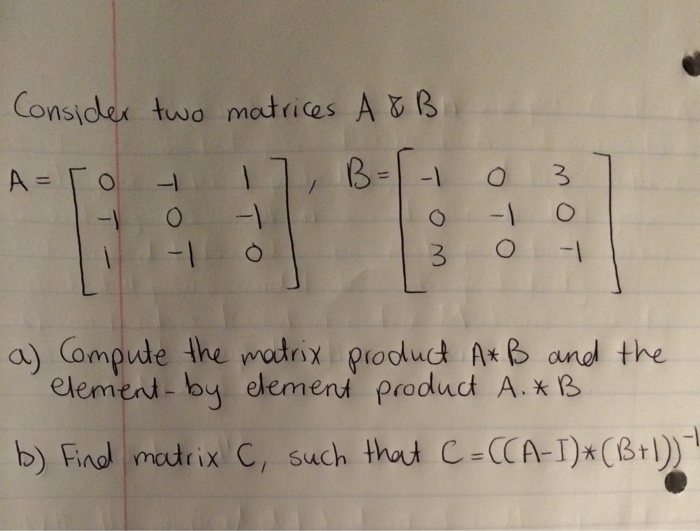 Consider two matrices A & B
A = [ 0 -1 1 ], B = [ -1 0 3 ]
-1 0 -1 0 -1 0
1 -1 0 3 0 -1
a) Compute the matrix product A*B and the
element-by element product A.*B
b) Find matrix C, such that C = ((A-I)*(B+1))^-1